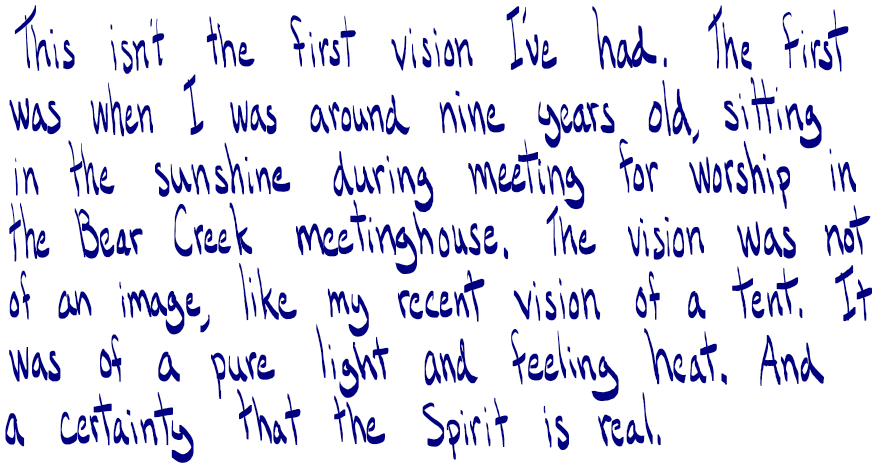 This isn't the first vision I've had. The first
was when I was around nine years old, sitting
in the sunshine during meeting for worship in
the Bear Creek meetinghouse. The vision was not
of an image, like my recent vision of a tent. It
was of a pure light and feeling heat. And
a certainty that the Spirit is real.